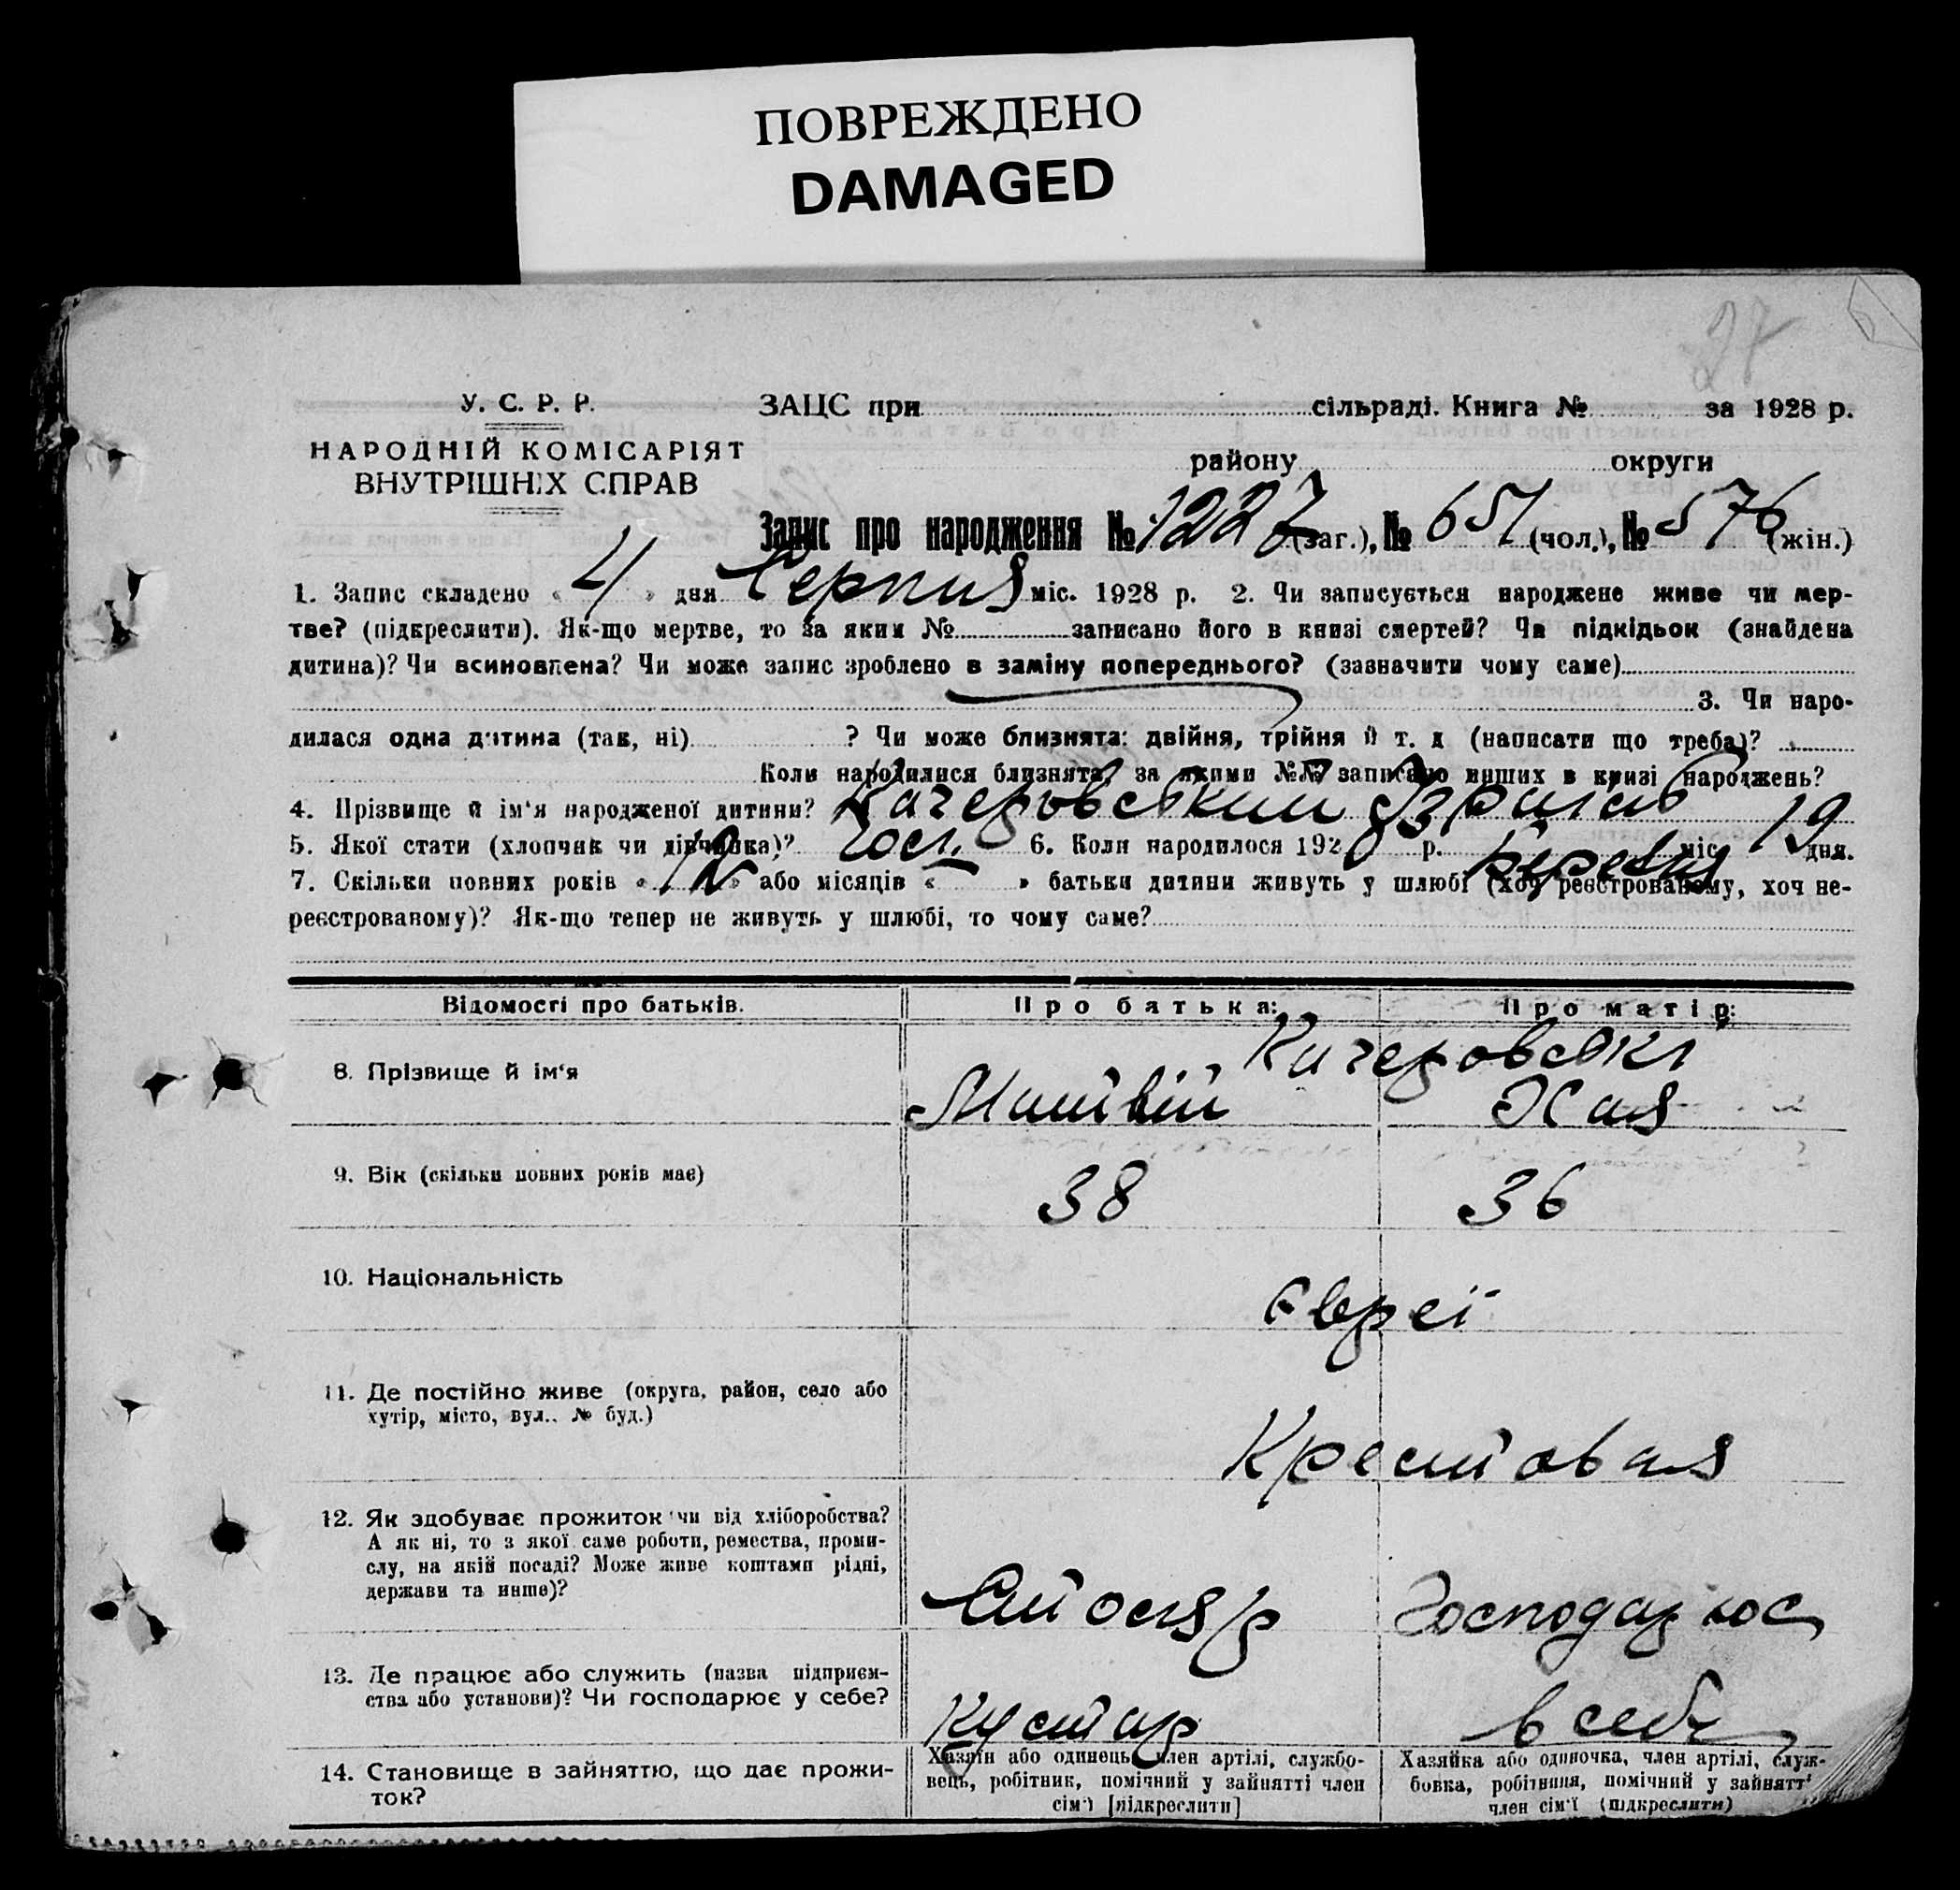 ПОВРЕЖДЕНО
DAMAGED
27
У. С. Р. Р.
НАРОДНІЙ КОМІСАРІЯТ
ВНУТРІШНІХ СПРАВ
ЗАЦС при сільраді. Книга № за 1928 р.
району округи
Запис про народження № 1227 (заг.), № 651 (чол.), № 576 (жін.)
1. Запис складено « 4 » дня Серпня міс. 1928 р. 2. Чи записується народжене живе чи мер-
тве? (підкреслити). Як-що мертве, то за яким № записано його в книзі смертей? Чи підкідьок (знайдена
дитина)? Чи всиновлена? Чи може запис зроблено в заміну попереднього? (зазначити чому саме)
3. Чи наро-
дилася одна дитина (так, ні) ? Чи може близнята: двійня, трійня й т. д (написати що треба)?
Коли народилися близнята, за якими №№ записано инших в книзі народжень?
4. Прізвище й ім'я народженої дитини? Качеровський Ізраїль
5. Якої стати (хлопчик чи дівчинка)? 6. Коли народилося 1928 р. міс. 19 дня.
7. Скільки повних років « 12 » або місяців « » батьки дитини живуть у шлюбі (хоч реєстрованому, хоч не-
реєстрованому)? Як-що тепер не живуть у шлюбі, то чому саме?
Відомості про батьків. Про батька: Про матір:
8. Прізвище й ім'я Качеровські
Матвій Хая
9. Вік (скільки повних років має) 38 36
10. Національність Євреї
11. Де постійно живе (округа, район, село або
хутір, місто, вул.. № буд.) Крестовая
12. Як здобуває прожиток чи від хліборобства?
А як ні, то з якої саме роботи, ремества, проми-
слу, на якій посаді? Може живе коштами рідні,
держави та инше)? Столяр Господарює
13. Де працює або служить (назва підприєм-
ства або установи)? Чи господарює у себе? Кустар в себе
14. Становище в зайняттю, що дає прожи-
ток?
Хазяїн або одинець, член артілі, службо-
вець, робітник, помічний у зайнятті член
сім'ї [підкреслити]
Хазяйка або одиночка, член артілі, служ-
бовка, робітниця, помічний у зайнятті
член сім'ї (підкреслити)